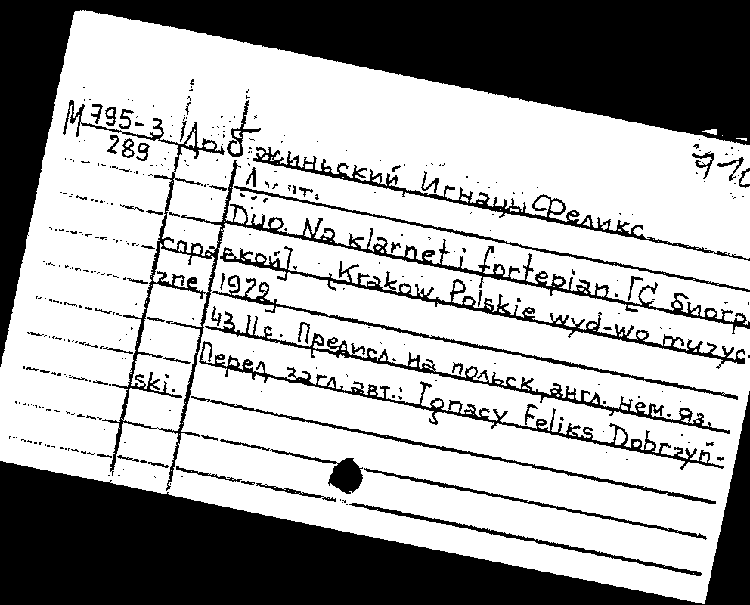 М 795-3
289
910
Добжиньский, Игнацы Феликс
Дуэт.
Duo. Na klarnet i fortepian. [С биогр.
справкой]. Kraków, Polskie wyd-wo muzycz
zne, 1972.
43, 11 с. Предисл. на польск., англ., нем. яз.
Перед загл. авт.: Ignacy Feliks Dobrzyń-
ski.